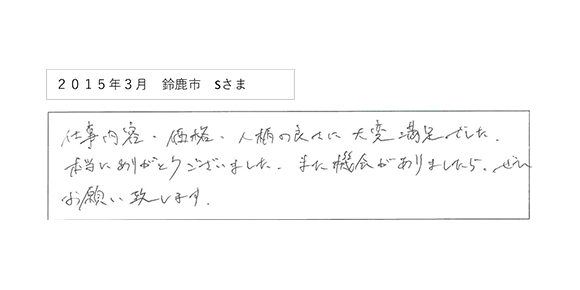 2015年3月 鈴鹿市 Sさま
仕事内容・価格・人柄の良さに大変満足でした。
本当にありがとうございました。また機会がありましたら、ぜひ
お願い致します。